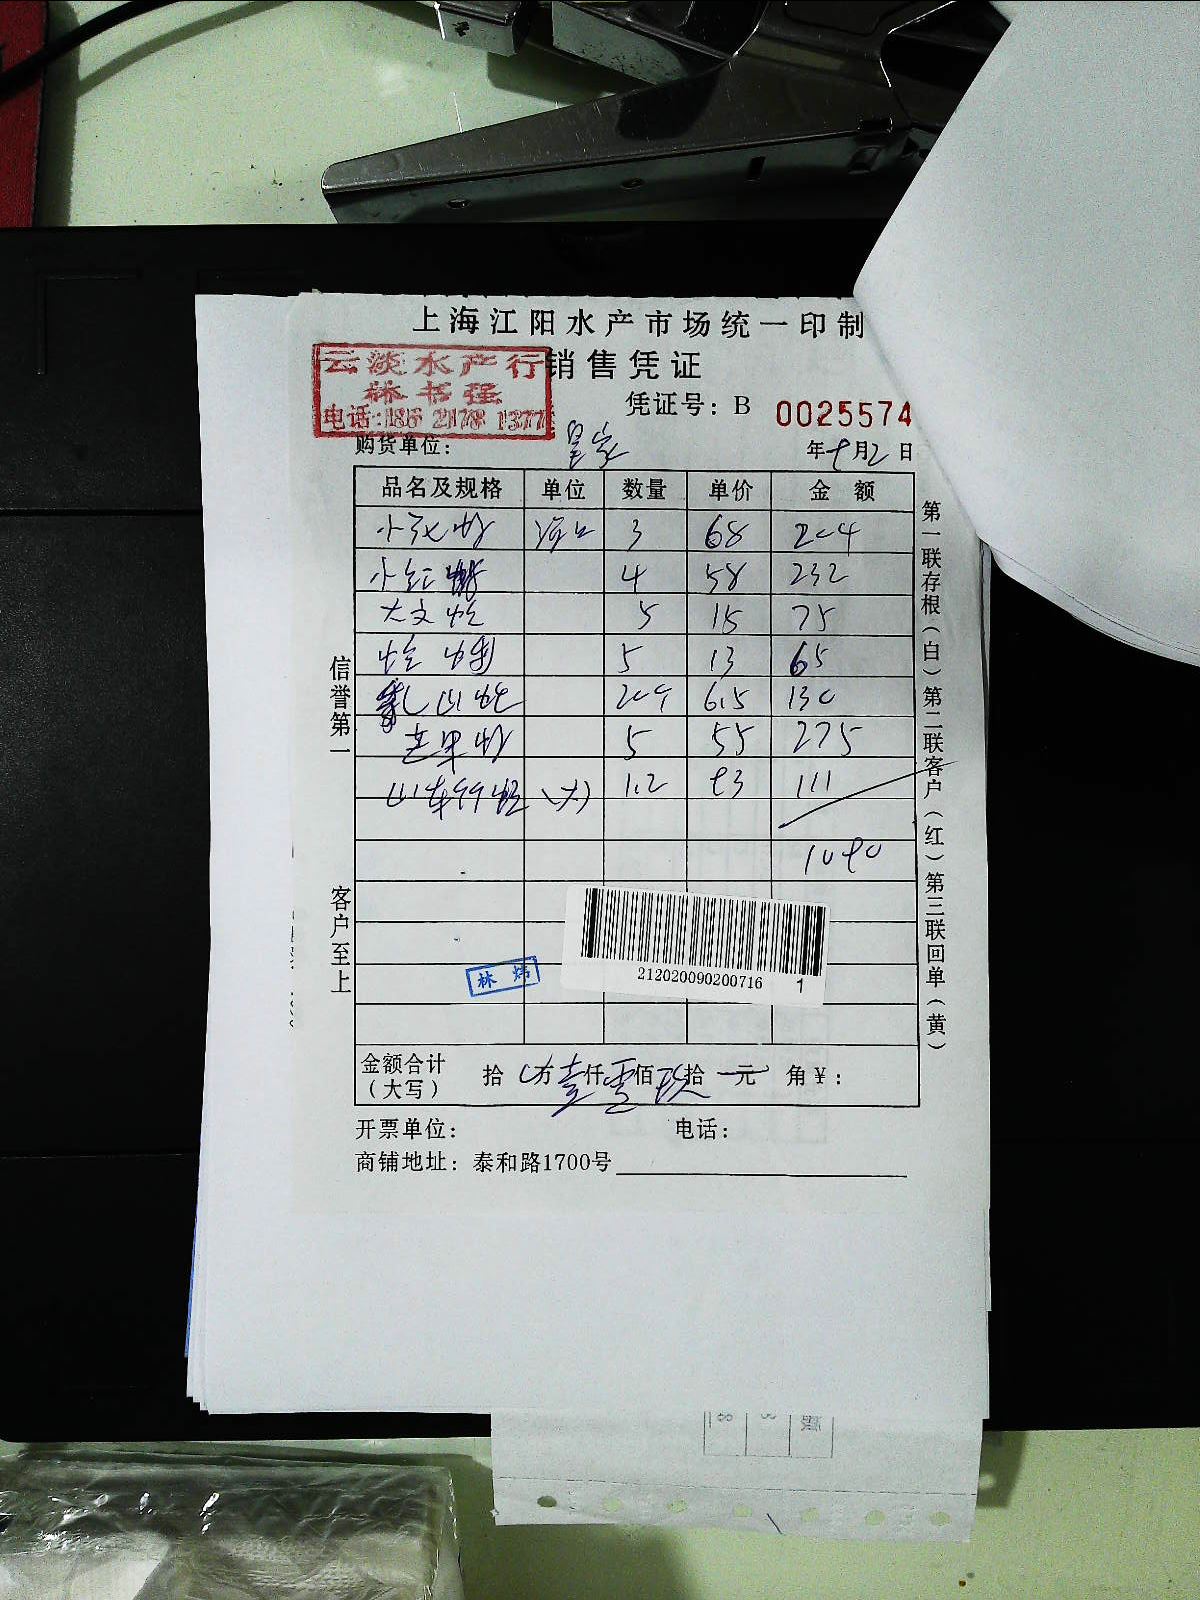 上海江阳水产市场统一印制
销售凭证
云淡水产行
林书强
电话:186 2178 1377
凭证号：B 0025574
购货单位： 皇家 年9月2日
品名及规格 单位 数量 单价 金额
3 68 204
小红虾 4 58 232
大文蛤 5 15 75
5 13 65
20斤 6.5 130
5 55 275
(大) 1.2 93 111
1090
212020090200716 1
林炜
金额合计（大写） 拾 万壹仟零佰玖拾 元 角¥：
开票单位： 电话：
商铺地址：泰和路1700号
信誉第一
客户至上
第一联存根（白）第二联客户（红）第三联回单（黄）